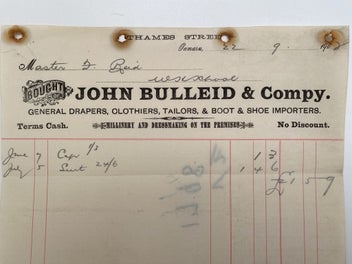 THAMES STREET
Oamaru, 22 9
Master F. Reid
BOUGHT
JOHN BULLEID & Compy.
GENERAL DRAPERS, CLOTHIERS, TAILORS, & BOOT & SHOE IMPORTERS.
Terms Cash. MILLINERY AND DRESSMAKING ON THE PREMISES No Discount.
June 7 Cap 1/3 1 3
July 5 Suit 24/6 1 4 6
£1 5 9